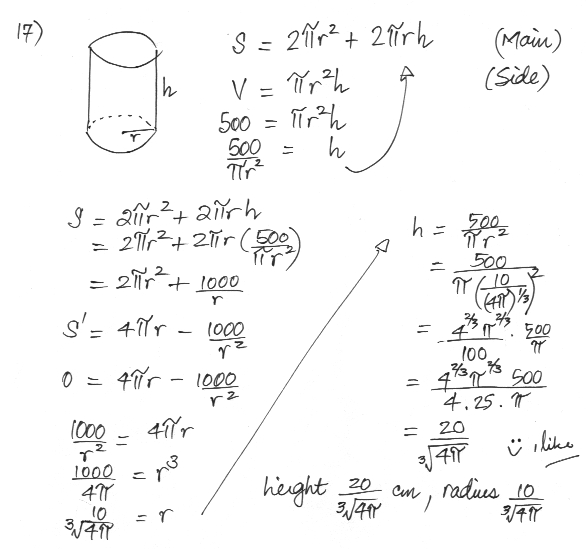 17)
h
r
S = 2πr² + 2πrh (Main)
V = πr²h (Side)
500 = πr²h
500/πr² = h
S = 2πr² + 2πrh
= 2πr² + 2πr (500/πr²)
= 2πr² + 1000/r
S' = 4πr − 1000/r²
0 = 4πr − 1000/r²
1000/r² = 4πr
1000/4π = r³
10/∛4π = r
h = 500/πr²
= 500/π(10/(4π)^⅓)²
= 4^⅔ π^⅔/100 · 500/π
= 4^⅔ π^⅔ 500/4.25.π
= 20/∛4π ü, like
height 20/∛4π cm, radius 10/∛4π